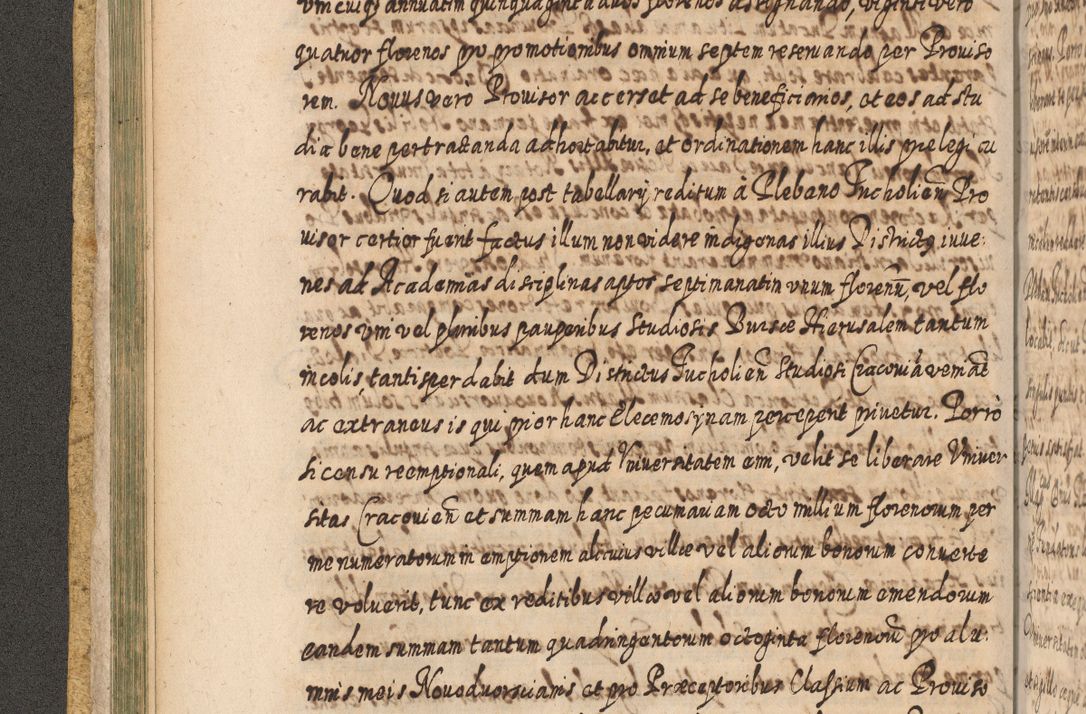 vm cuiq annuatim quinquaginta duos florenos assignando, viginti vero
quatuor florenos pro promotionibus omnium septem reseruando per Prouiso
rem. Nouus vero Prouisor accerset ad se beneficiarios, et eos ad stu
dia bene pertractanda adhortabitur, et ordinationem hanc illis prælegi cu
rabit. Quod si autem post tabellarij reditum à Plebano Tucholien̄ Pro
uisor certior fuerit factus illum non videre indigenas illius Districtq iuue:
nes ad Academiæ disciplinas aptos septimanatim vnum florenū, vel flo
renos vm vel pluribus pauperibus Studiosis Bursæ Hierusalem tantum
incolis, tantisper dabit dum Districtus Tucholien̄ Studiosi Cracouiā veniāt
ac extraneus is qui prior hanc Elecemosynam perceperit priuetur. Porro
si censu reemptionali, quem apud Vniuersitatem emi, velit se liberare Vniuer
sitas Cracouien̄ et summam hanc pecuniariam octo millium florenorum per
me numeratorum in emptionem alicuius villæ vel aliorum bonorum conuerte
re voluerit, tunc ex reditibus villæ vel aliorum bonorum emendorum
eandem summam tantum quadringentorum octoginta florenorū pro alu:
mnis meis Nouoduorscianis et pro Præceptoribus Classium ac Prouiso